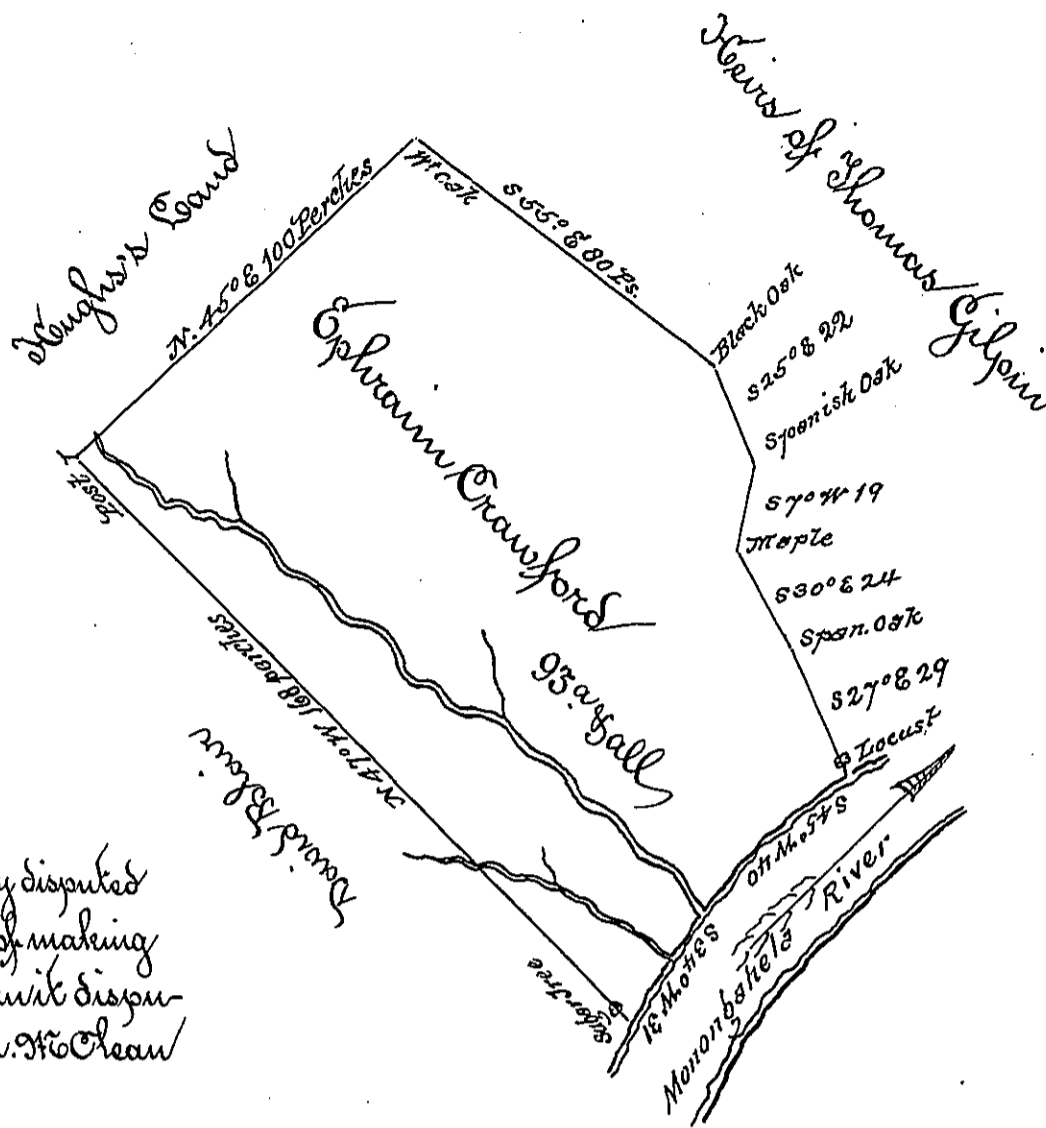 Heirs of Thomas Gilpin
Hughs's Land
N. 45° E 100 Perches
Wt. Oak
S 55° E 80 Ps.
Black Oak
S 25° E 22
Spanish Oak
S 7° W 19
Maple
S 30° E 24
Span. Oak
S 27° E 29
Locust
Ephraim Crawford
93 a & all
Post
N 47° W 168 parches
David Blair
Sugar Tree
S 45° W 40
S 34° W 31
Monongahela River
y disputed
of making
dispu-
McClean